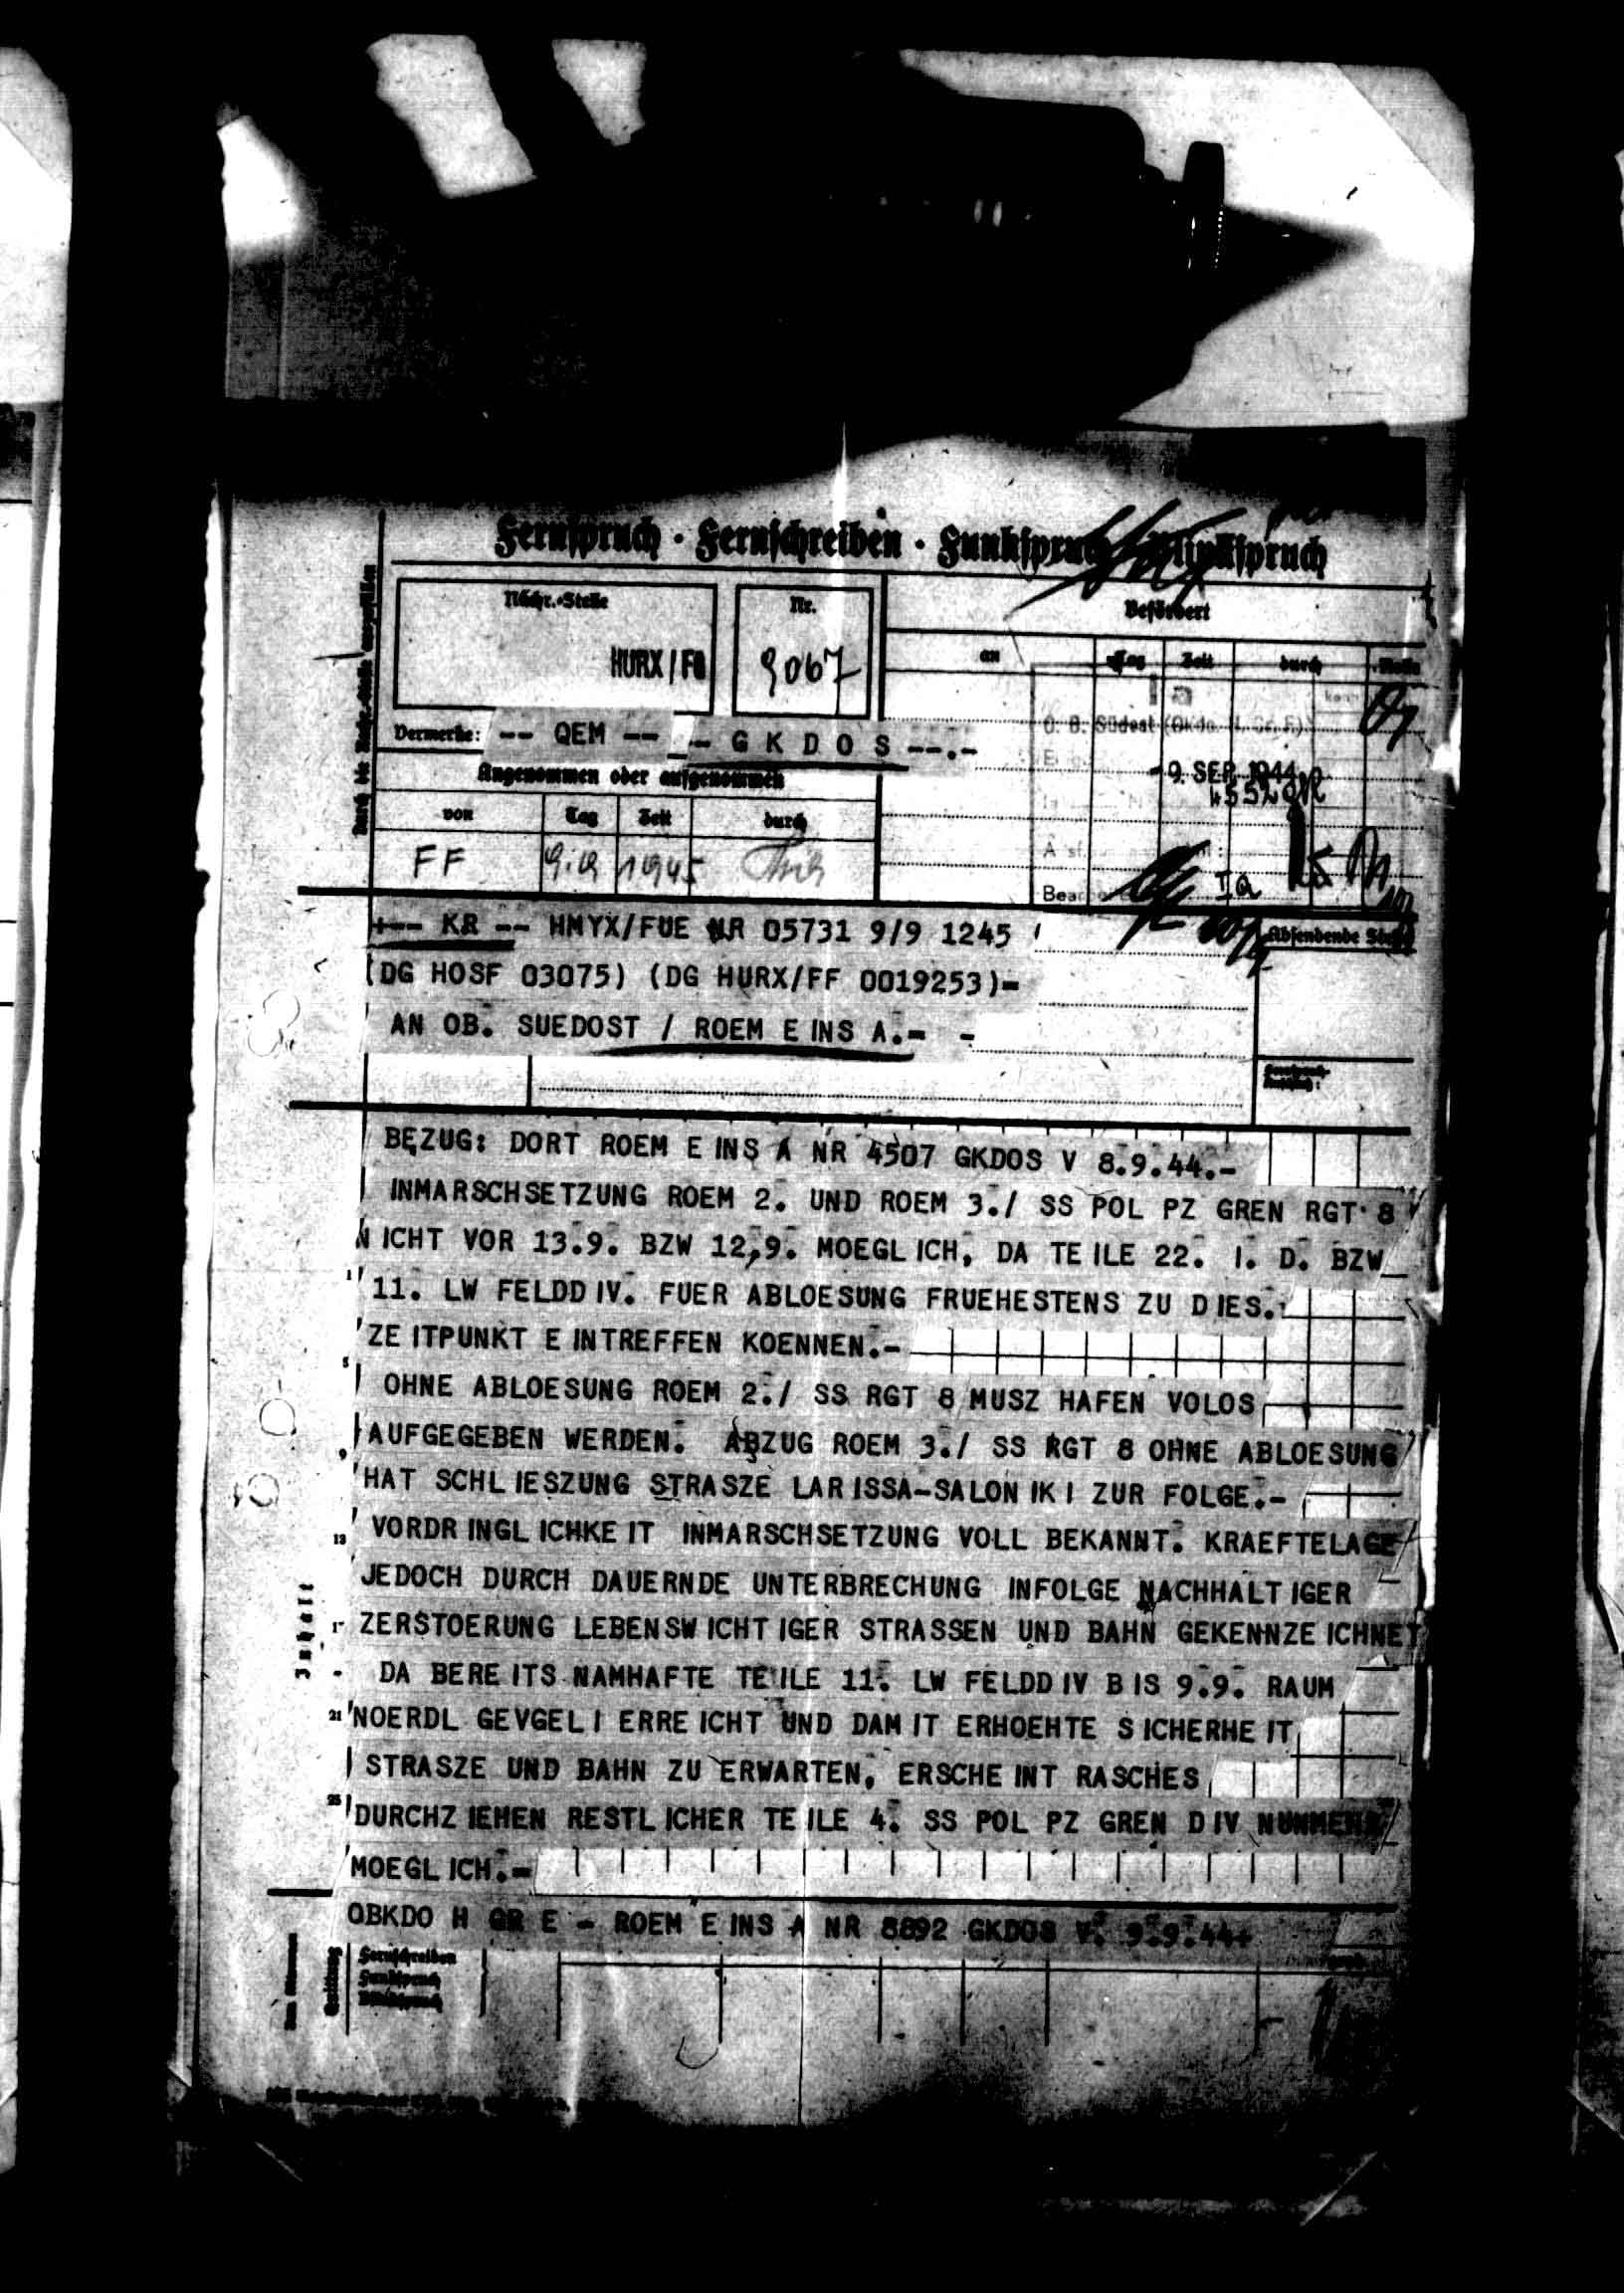 Fernspruch · Fernschreiben · Funkspruch · Blinkspruch
Nachr.-Stelle
Nr.
Befördert
an
Tag
Zeit
durch
Rolle
HURX/FB
9067
Ia
O. B. Südost (Okdo. H. Gr. F)
Vermerke: -- QEM -- -- G K D O S --.-
- 9. SEP. 1944
Angenommen oder aufgenommen
von
Tag
Zeit
durch
FF
9.9
1945
Ia
+-- KR -- HMYX/FUE NR 05731 9/9 1245
Absendende Stelle
(DG HOSF 03075) (DG HURX/FF 0019253)=
AN OB. SUEDOST / ROEM EINS A.= -
BEZUG: DORT ROEM EINS A NR 4507 GKDOS V 8.9.44.-
INMARSCHSETZUNG ROEM 2. UND ROEM 3./ SS POL PZ GREN RGT 8
NICHT VOR 13.9. BZW 12,9. MOEGLICH, DA TEILE 22. I. D. BZW
11. LW FELDDIV. FUER ABLOESUNG FRUEHESTENS ZU DIES.
ZEITPUNKT EINTREFFEN KOENNEN.-
OHNE ABLOESUNG ROEM 2./ SS RGT 8 MUSZ HAFEN VOLOS
AUFGEGEBEN WERDEN. ABZUG ROEM 3./ SS RGT 8 OHNE ABLOESUNG
HAT SCHLIESZUNG STRASZE LARISSA-SALONIKI ZUR FOLGE.-
VORDRINGLICHKEIT INMARSCHSETZUNG VOLL BEKANNT. KRAEFTELAGE
JEDOCH DURCH DAUERNDE UNTERBRECHUNG INFOLGE NACHHALTIGER
ZERSTOERUNG LEBENSWICHTIGER STRASSEN UND BAHN GEKENNZEICHNET
DA BEREITS NAMHAFTE TEILE 11. LW FELDDIV BIS 9.9. RAUM
NOERDL GEVGELI ERREICHT UND DAMIT ERHOEHTE SICHERHEIT
STRASZE UND BAHN ZU ERWARTEN, ERSCHEINT RASCHES
DURCHZIEHEN RESTLICHER TEILE 4. SS POL PZ GREN DIV NUNMEHR
MOEGLICH.=
OBKDO H GR E - ROEM EINS A NR 8892 GKDOS V. 9.9.44+
Inhalt
Fernschreiben
Funkspruch
Blinkspruch